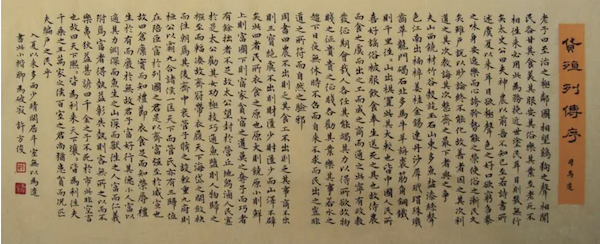 貨殖列傳序
老子曰至治之極鄰國相望鷄狗之聲相聞
民各甘其食美其服安其俗樂其業至老死不
相往來必用此為務輓近世塗民耳目則幾無行
矣太史公曰夫神農以前吾不知已至若詩書所
述虞夏以來耳目欲極聲色之好口欲窮芻豢
之味身安逸樂而心誇矜勢能之榮使俗之漸民久
矣雖戶說以眇論終不能化故善者因之其次利
道之其次教誨之其次整齊之最下者與之爭
夫山西饒材竹榖纑旄玉石山東多魚鹽漆絲聲
色江南出楠梓薑桂金錫連丹沙犀瑇瑁珠璣
齒革龍門碣石北多馬牛羊旃裘筋角銅鐵
則千里往往山出棋置此其大較也皆中國人民所
喜好謠俗被服飲食奉生送死之具也故待農
而食之虞而出之工而成之商而通之此寧有政教
發徵期會哉人各任其能竭其力以得所欲故物
賤之徵貴貴之徵賤各勸其業樂其事若水之
趨下日夜無休時不召而自來不求而民出之豈非
道之所符而自然之驗邪
周書曰農不出則乏其食工不出則乏其事商不出
則三寶絕虞不出則財匱少財匱少而山澤不辟
矣此四者民所衣食之原也原大則饒原小則鮮
上則富國下則富家貧富之道莫之奪予而巧者
有餘拙者不足故太公望封於營丘地潟鹵人民寡
於是太公勸其女功極技巧通魚鹽則人物歸之
繈至而輻湊故齊冠帶衣履天下海岱之間斂袂
而往朝焉其後齊中衰管子修之設輕重九府則
桓公以霸九合諸侯一匡天下而管氏亦有三歸位
在陪臣富於列國之君是以齊富彊至於威宣也
故曰倉廩實而知禮節衣食足而知榮辱禮
生於有而廢於無故君子富好行其德小人富以
適其力淵深而魚生之山深而獸往之人富而仁義
附焉富者得勢益彰失勢則客無所之以而不
樂夷狄益甚諺曰千金之子不死於市此非空言
也故曰天下熙熙皆為利來天下壤壤皆為利往夫
千乘之王萬家之侯百室之君尚猶患貧而況匹
夫編戶之民乎